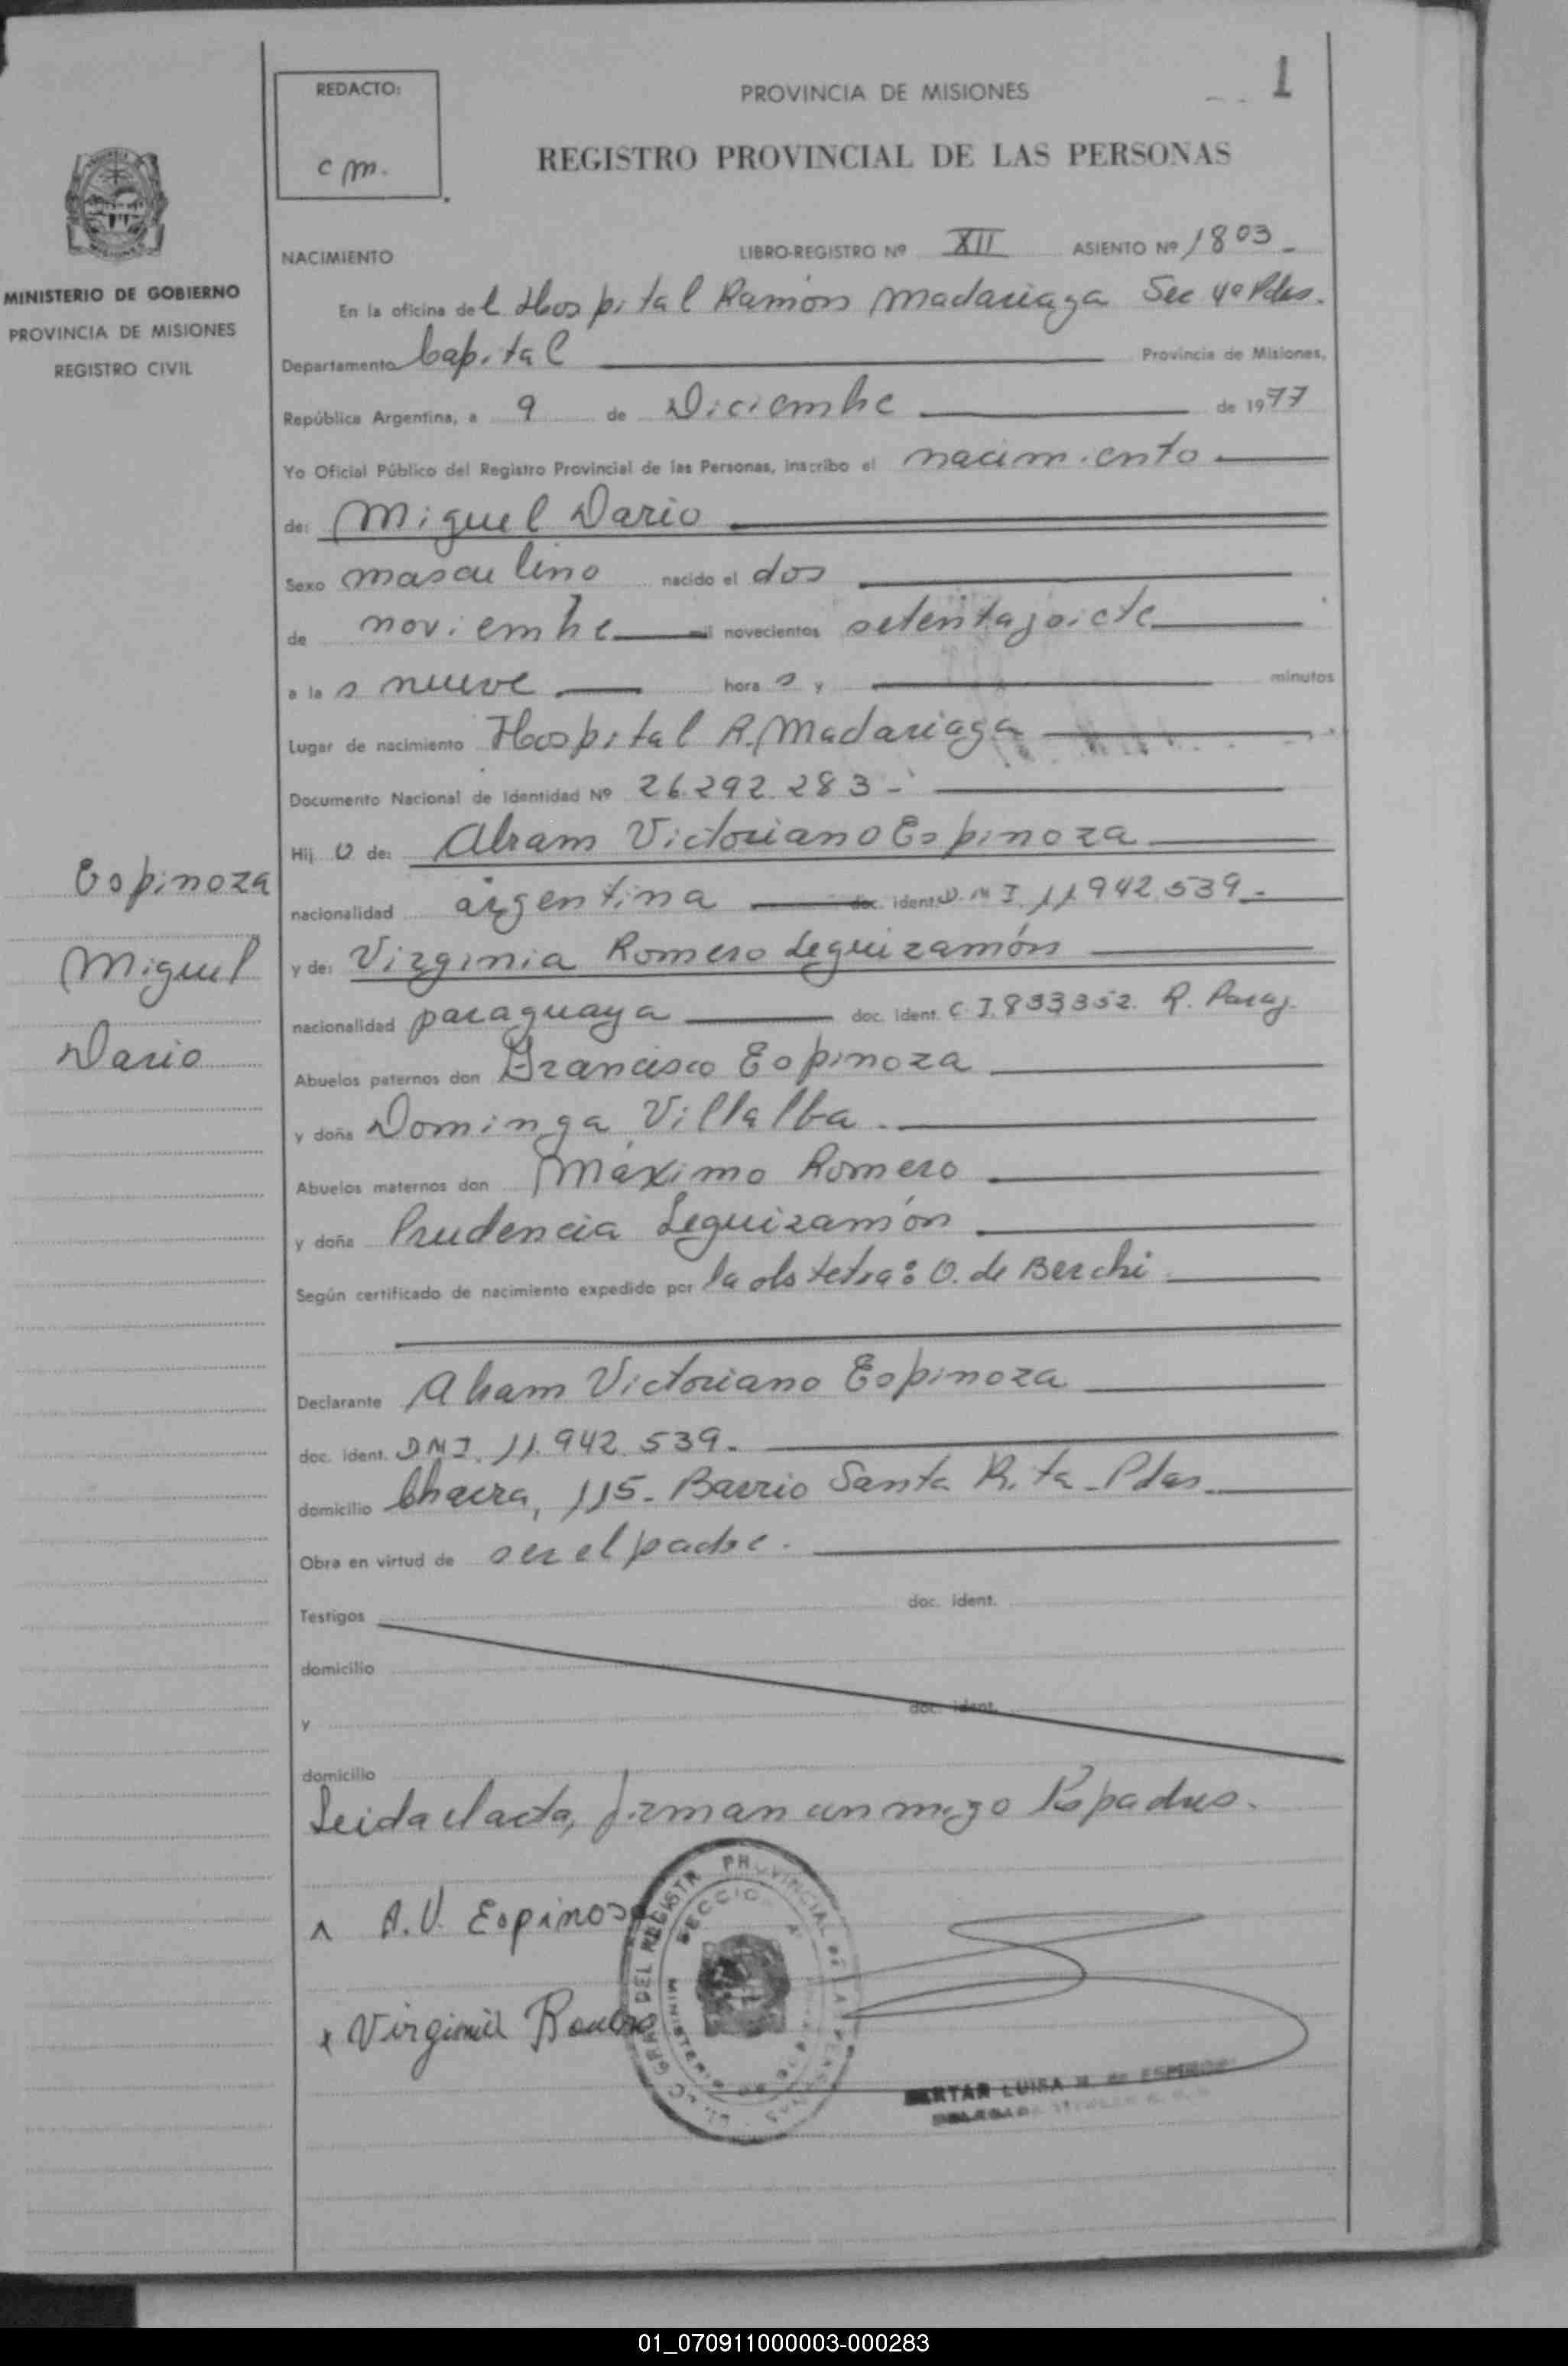 REDACTO:
c m.
PROVINCIA DE MISIONES
1
REGISTRO PROVINCIAL DE LAS PERSONAS
MINISTERIO DE GOBIERNO
PROVINCIA DE MISIONES
REGISTRO CIVIL
NACIMIENTO LIBRO-REGISTRO Nº XII ASIENTO Nº 1803-
En la oficina del Hospital Ramón Madariaga Sec 4º Pdas.
Departamento Capital Provincia de Misiones,
República Argentina, a 9 de Diciembre de 1977
Yo Oficial Público del Registro Provincial de las Personas, inscribo el nacimiento
de: Miguel Dario
Sexo masculino nacido el dos
de noviembre mil novecientos setentaysiete
a las nueve horas y minutos
Lugar de nacimiento Hospital R. Madariaga
Documento Nacional de Identidad Nº 26.292.283-
Hijo de: Abram Victoriano Espinoza
nacionalidad argentina doc. ident. D.N.I. 11.942.539-
y de: Virginia Romero Leguizamón
nacionalidad paraguaya doc. ident. C.I. 833352. R. Parag.
Abuelos paternos don Francisco Espinoza
y doña Dominga Villalba.
Abuelos maternos don Máximo Romero
y doña Prudencia Leguizamón
Según certificado de nacimiento expedido por la obstetra: O. de Berchi
Declarante Abram Victoriano Espinoza
doc. ident. DNI. 11.942.539.
domicilio Chacra, 115- Barrio Santa Rita-Pdas.
Obra en virtud de ser el padre.
Testigos doc. ident.
domicilio
y doc. ident.
domicilio
Leida el acta, firman conmigo los padres.
A.V. Espinosa
Virginia Romero
Espinoza
Miguel
Dario
LUISA
01_070911000003-000283